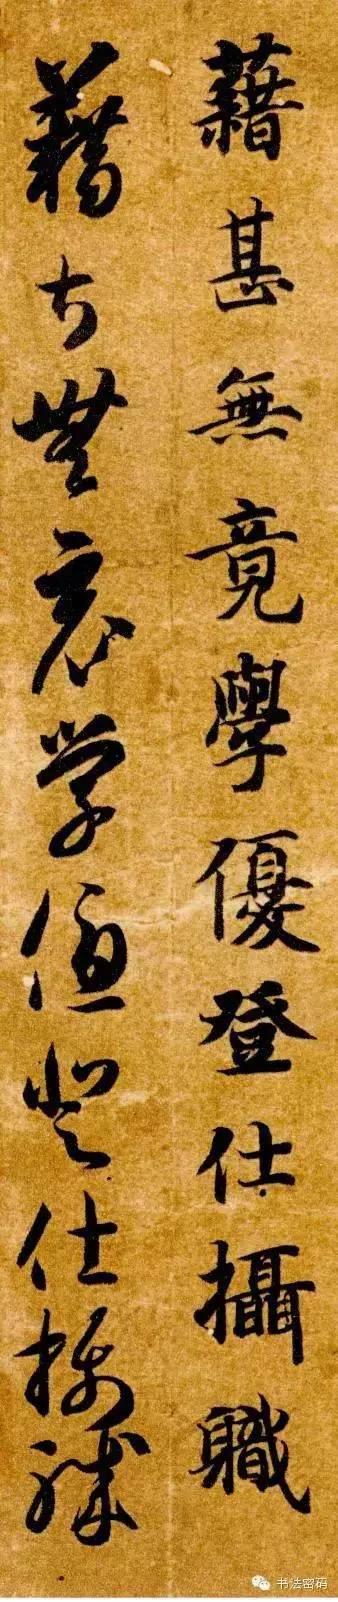 藉甚無竟學優登仕攝職
藉甚無竟學優登仕攝職
书法密码